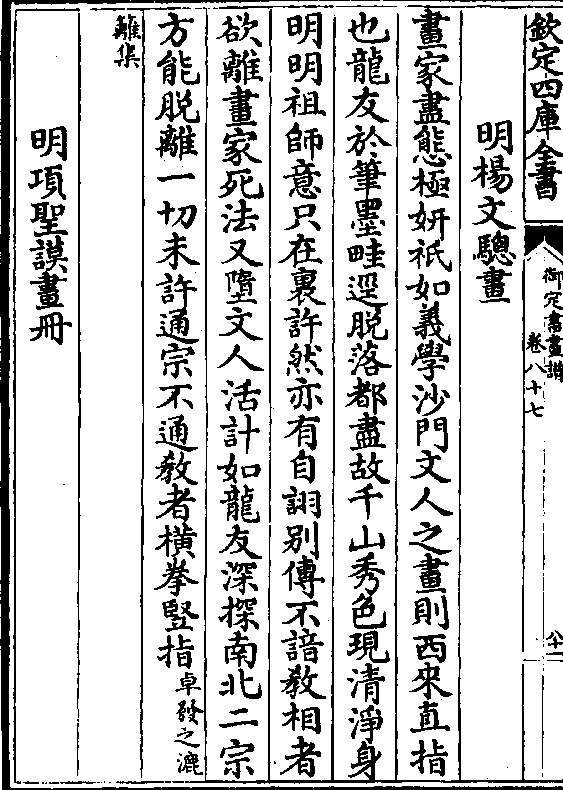 欽定四庫全書
御定書畫譜
卷八十七
八十二
明楊文驄畫
畫家盡態極妍祇如義學沙門文人之畫則西來直指
也龍友於筆墨畦逕脱落都盡故千山秀色現清淨身
明明祖師意只在裏許然亦有自詡别傳不諳教相者
欲離畫家死法又墮文人活計如龍友深探南北二宗
方能脱離一切未許通宗不通教者横拳竪指卓發之漉
離集
明項聖謨畫冊